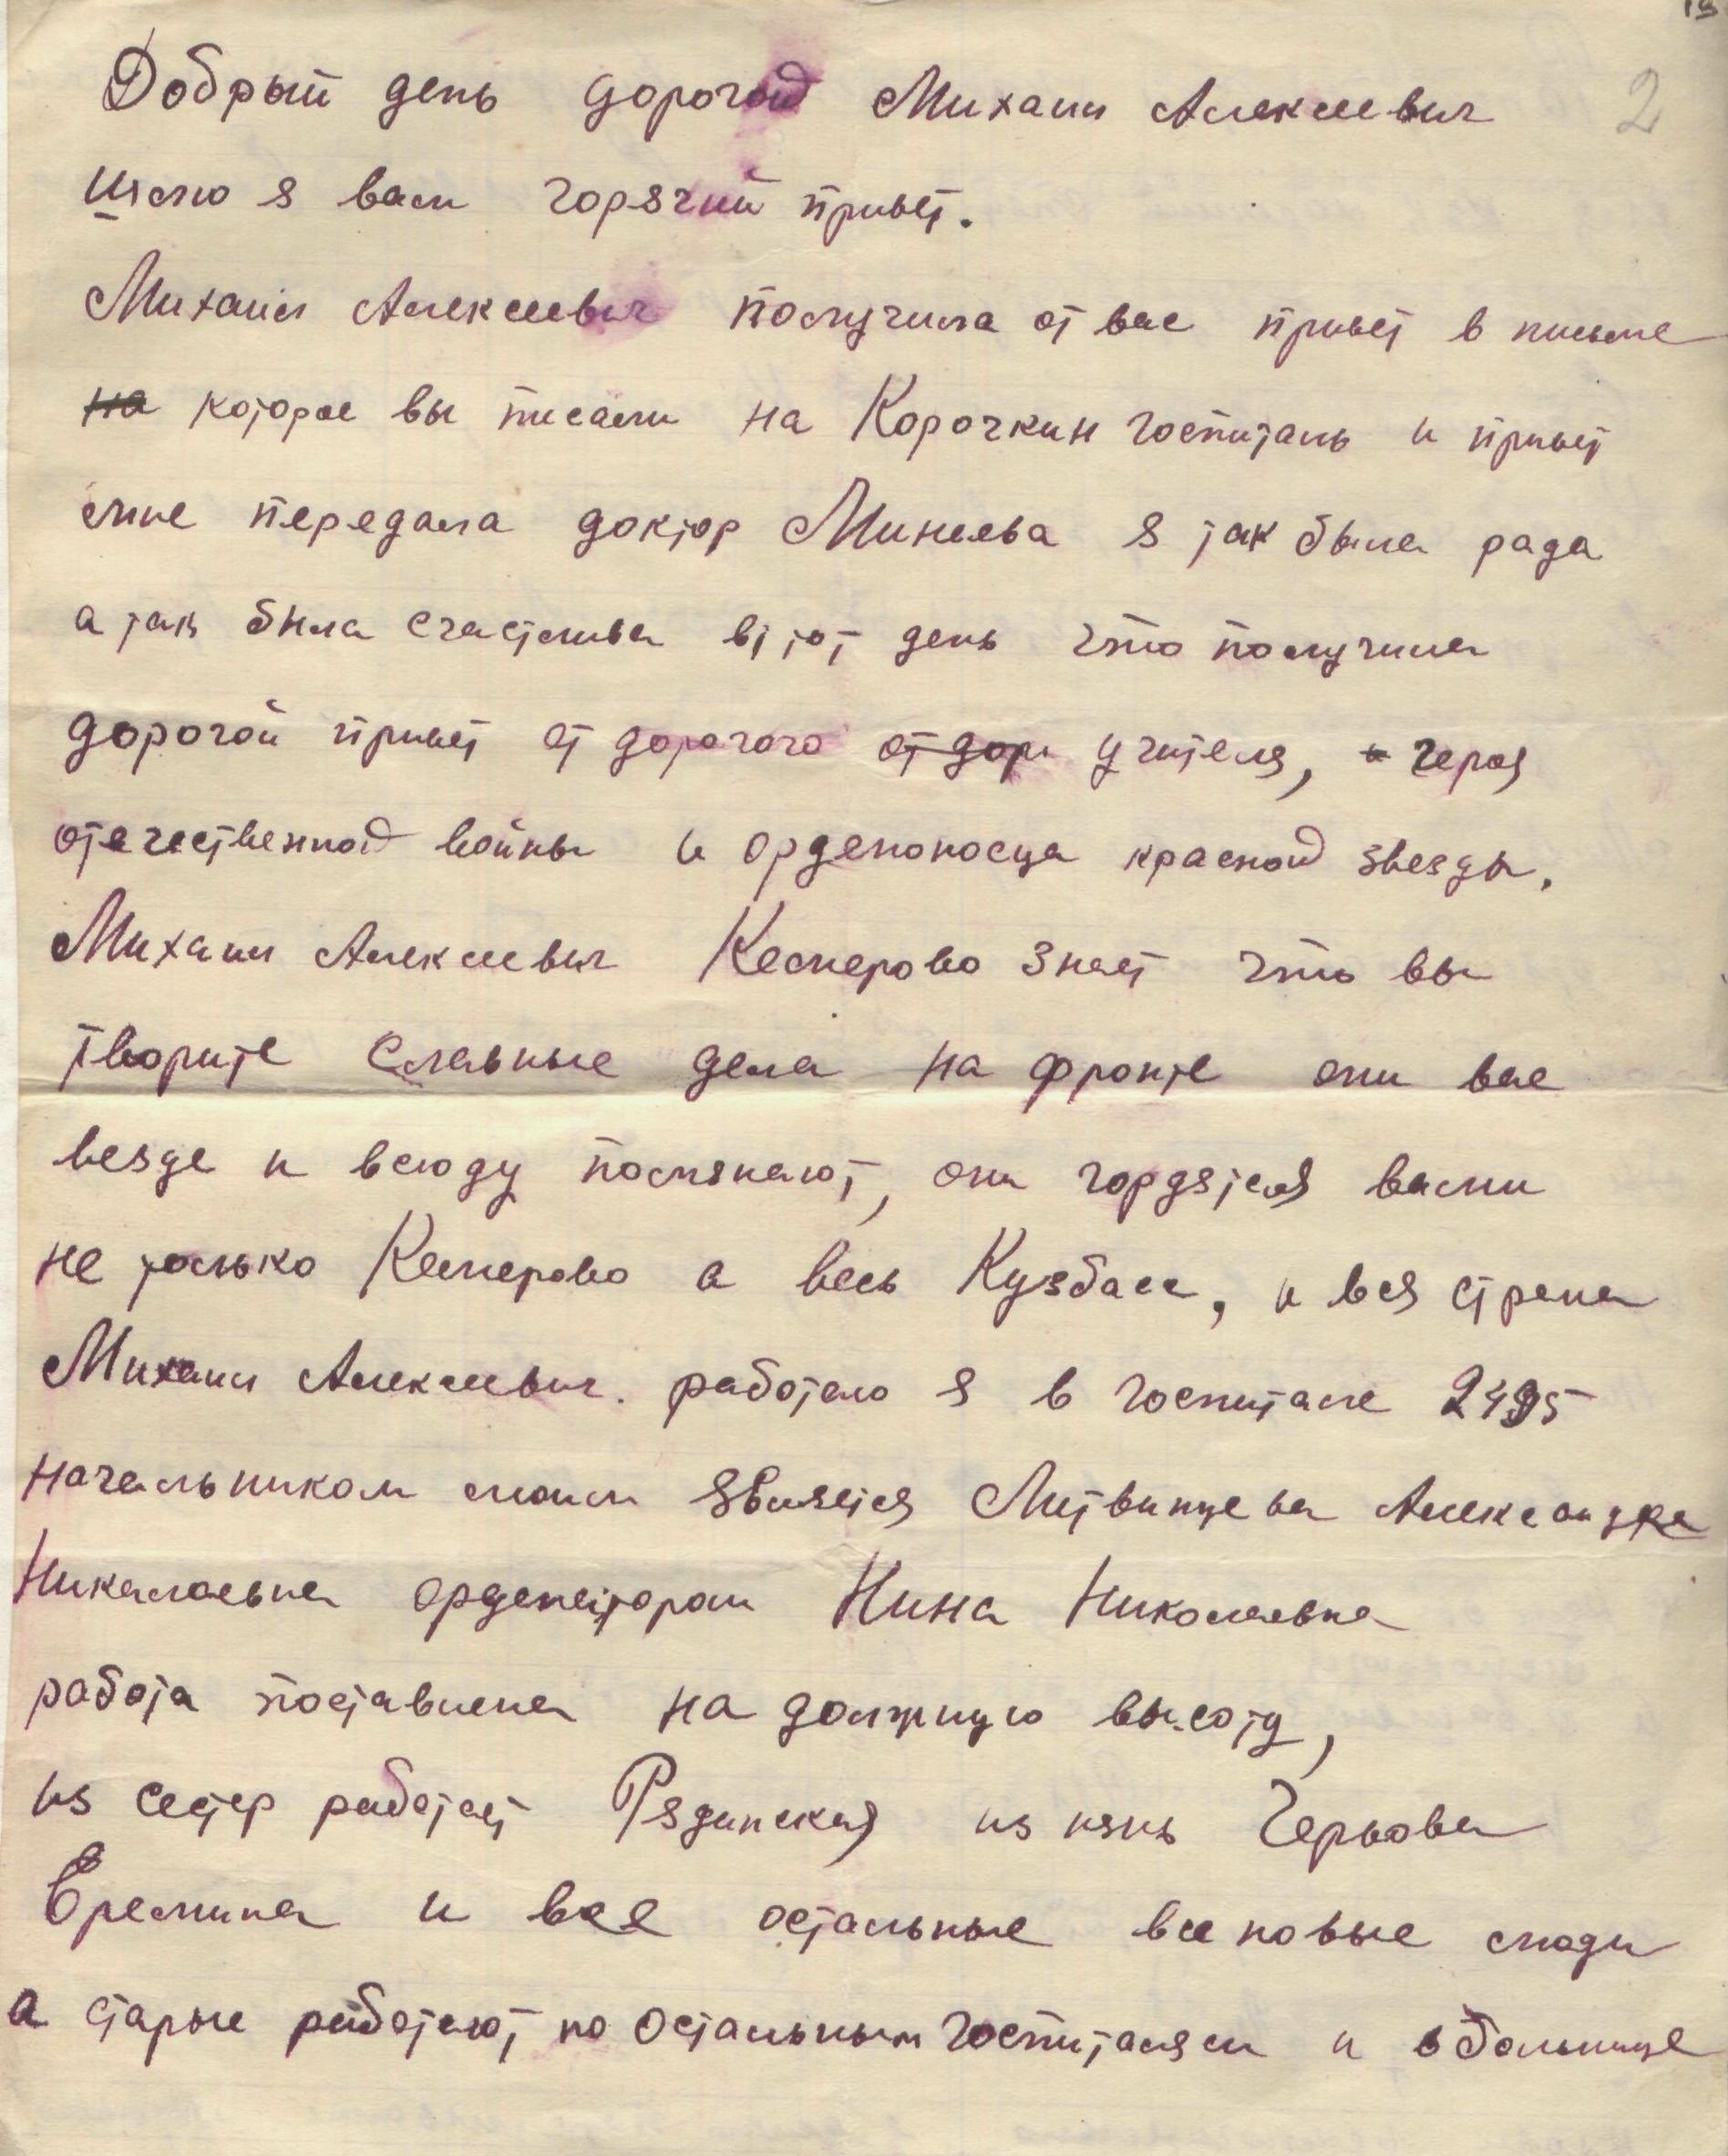 2
Добрый день дорогой Михаил Алексеевич
шлю я вам горячий привет.
Михаил Алексеевич получила от вас привет в письме
на которое вы писали на Корочкин госпиталь и привет
мне передала доктор Минеева я так была рада
а так была счастлива в тот день что получила
дорогой привет от дорогого от дор учителя, и героя
отечественной войны и орденоносца красной звезды.
Михаил Алексеевич Кемерово знает что вы
творите славные дела на фронте они вас
везде и всюду помянают, они гордятся вами
не только Кемерово а весь Кузбасс, и вся страна
Михаил Алексеевич. работаю я в госпитале 2495
начальником моим является Литвинцева Александра
Николаевна орденатором Нина Николаевна
работа поставлена на должную высоту,
из сестер работает Рядинская из нянь
Еремина и все остальные все новые люди
а старые работают по остальным госпиталям и в больнице